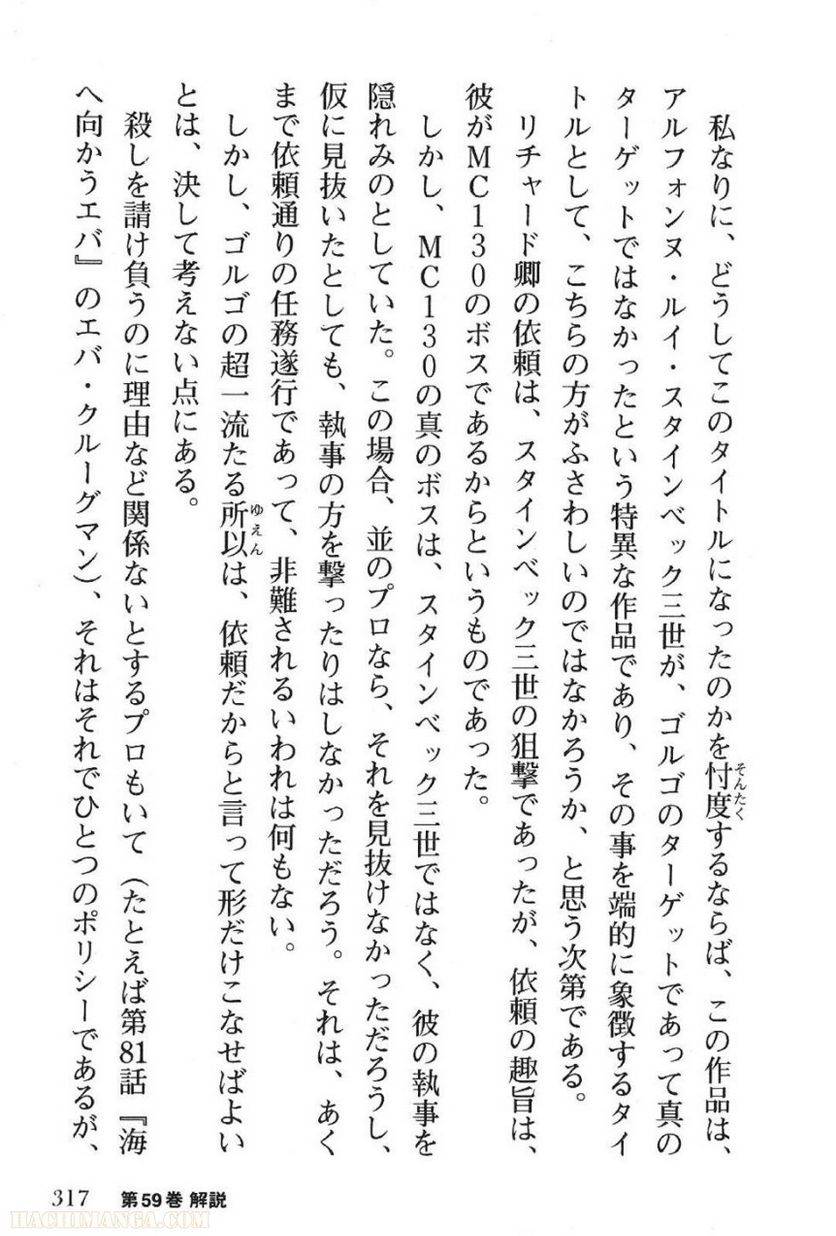 私なりに、どうしてこのタイトルになったのかを忖度するならば、この作品は、
そんたく
アルフォンヌ・ルイ・スタインベック三世が、ゴルゴのターゲットであって真の
ターゲットではなかったという特異な作品であり、その事を端的に象徴するタイ
トルとして、こちらの方がふさわしいのではなかろうか、と思う次第である。
リチャード卿の依頼は、スタインベック三世の狙撃であったが、依頼の趣旨は、
彼がMC130のボスであるからというものであった。
しかし、MC130の真のボスは、スタインベック三世ではなく、彼の執事を
隠れみのとしていた。この場合、並のプロなら、それを見抜けなかっただろうし、
仮に見抜いたとしても、執事の方を撃ったりはしなかっただろう。それは、あく
まで依頼通りの任務遂行であって、非難されるいわれは何もない。
しかし、ゴルゴの超一流たる所以は、依頼だからと言って形だけこなせばよい
ゆえん
とは、決して考えない点にある。
殺しを請け負うのに理由など関係ないとするプロもいて（たとえば第81話『海
へ向かうエバ』のエバ・クルーグマン）、それはそれでひとつのポリシーであるが、
317 第59巻 解説
HACHIMANGA.COM